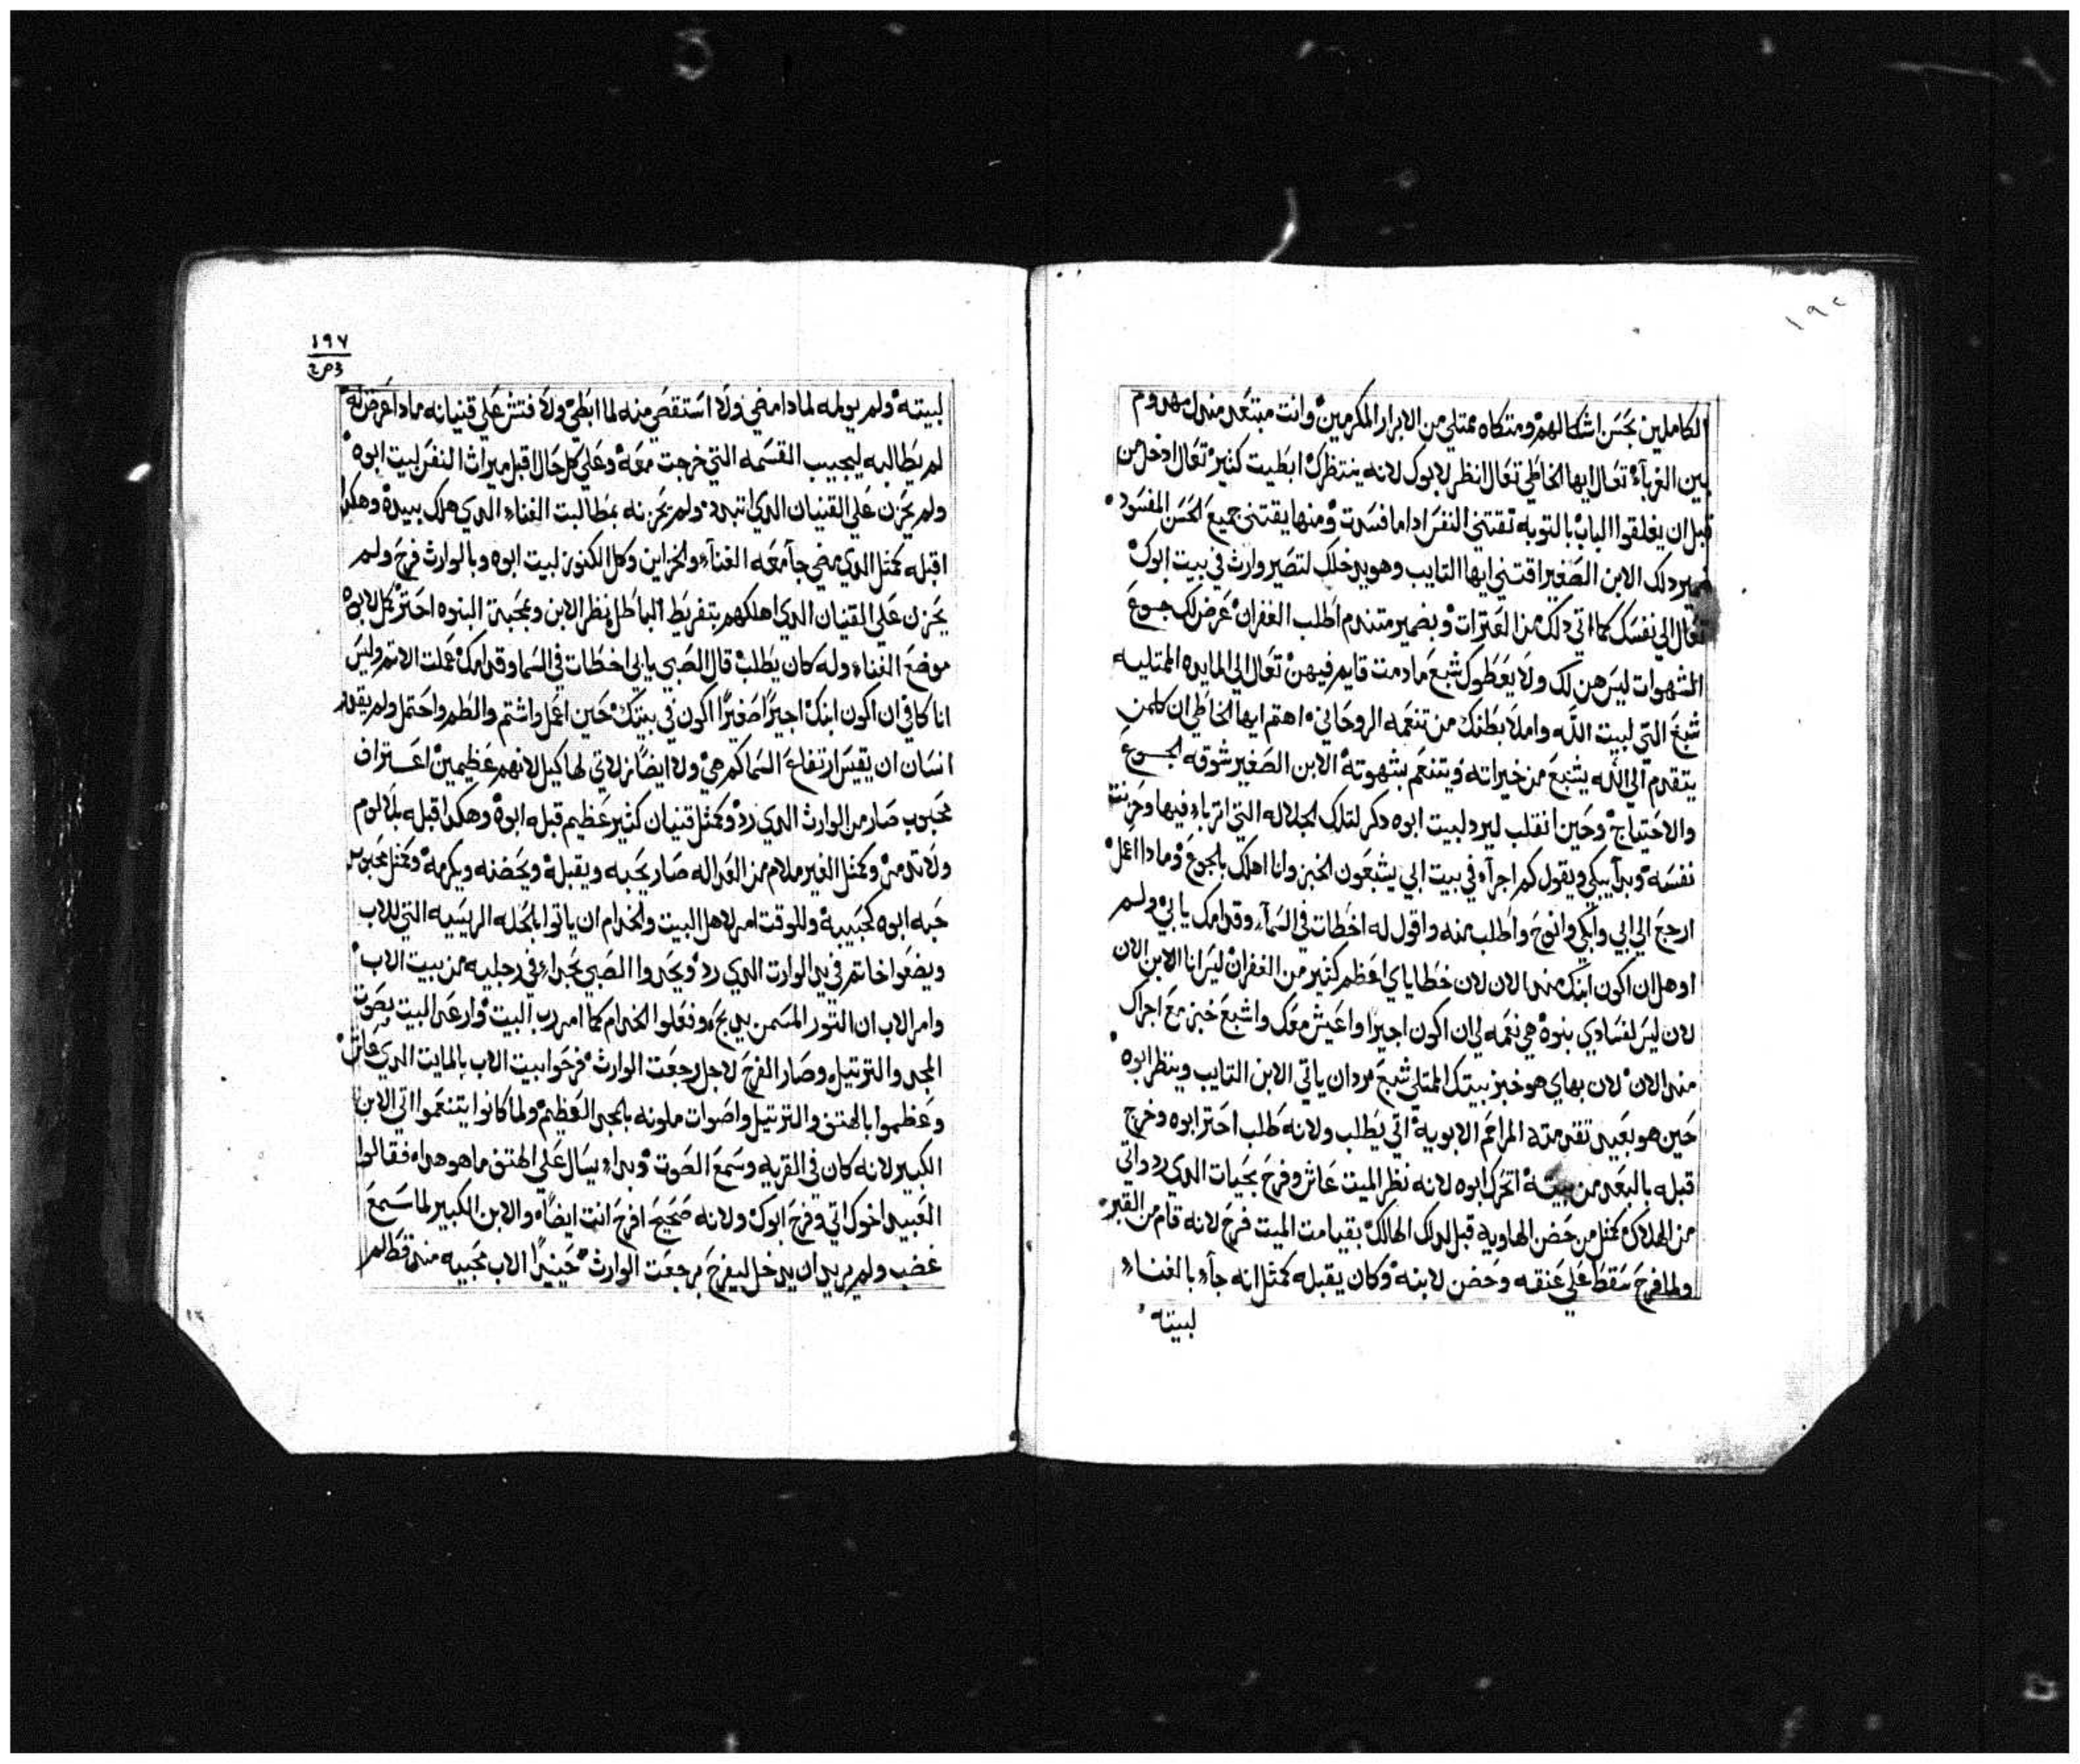 الكاملين بحسن اشكالهم ومتكاه ممتلي من الابرار المكرمين وانت مبتعد منه
بين الغرباء تعال ايها الخاطي تعال انظر لابوك لانه ينتظرك ابطيت كثير تعال ادخل من
قبل ان يغلقوا الباب بالتوبه تقتني النفس اداما فسدت ومنها يقتني جميع الحسن المفسود
ضمير دلك الابن الصغير اقتني ايها التايب وهو يدخلك لتصير وارث في بيت ابوك
تعال الي نفسك كما اتي دلك من العترات وبضمير متندم اطلب الغفران عرض لك جوع
الشهوات ليس هن لك ولا يعطوك شبع مادمت قايم فيهن تعال الي المايده الممتليه
شبع التي لبيت الله واملا بطنك من تنعمه الروحاني اهتم ايها الخاطي ان كلمن
يتقدم الي الله يشبع من خيراته ويتنعم بشهوته الابن الصغير شوقه الجوع
والاحتياج وحين انقلب ليرد لبيت ابوه دكر لتلك الجلاله التي اترباء فيها وحزنت
نفسه وبدا يبكي ويقول كم اجراء في بيت ابي يشبعون الخبز وانا اهلك بالجوع ومادا اعمل
ارجع الي ابي وابكي وانوح واطلب منه واقول له اخطات في السماء وقدامك يا ابي ولم
اوهل ان اكون ابنك مند الان لان خطاياي اعظم كثير من الغفران ليس انا الابن الان
لان ليس لفسادي بنوه هي نعمه لي ان اكون اجيرا واعيش معك واشبع خبز مع اجراك
مند الان لان بهاي هو خبز بيتك الممتلي شبع مردان ياتي الابن التايب وينظر ابوه
حين هو بعيد تقدمته المراحم الابوية اتي يطلب ولانه طلب احتر ابوه وخرج
قبله بالبعد من بيته اتحرك ابوه لانه نظر الميت عاش وفرح بحيات الدي رد واتي
من الهلاك كمثل من حضن الهاويه قبل لدلك الهالك بقيامت الميت فرح لانه قام من القبر
ولما فرح سقط علي عنقه وحضن لابنه وكان يقبله كمثل انه جاء بالغناء
لبيته
١٩٧
لبيته ولم يولمه لمادا مضي ولا استقصي منه لما ابطي ولا فتش علي قنيانه مادا عرض له
لم يطالبه ليجيب القسمه التي خرجت معه وعلي كل حال اقبل ميراث النفس لبيت ابوه
ولم يحزن علي القنيان الدي اتبدد ولم يحزنه بمطالبت الغناء الدي هلك بيده وهكدا
اقبله كمثل الدي مضي جا معه الغناء والخزاين وكل الكنوز لبيت ابوه وبالوارث فرح ولم
يحزن علي القنيان الدي اهلكهم بتفريط الباطل نظر الابن وبمحبة البنوه احتر كل الابوه
موضع الغناء وله كان يطلب قال الصبي يا ابي اخطات في السما وقدامك عملت الاتم وليس
انا كافي ان اكون ابنك اجيرًا صغيرًا اكون في بيتك حين اعمل واشتم والطم واحتمل ولم يقدر
انسان ان يقيس ارتفاع السما كم هي ولا ايضًا زلاتي لها كيل لانهم عظيمين اعتراف
محبوب صار من الوارث الدي رد وكمثل قنيان كثير عظيم قبله ابوه وهكدا اقبله بلا لوم
ولا تدمر وكمثل الغير ملام من العداله صار يحبه ويقبله ويحضنه ويكرمه وكمثل محبوب
حبه ابوه كحبيبه وللوقت امر لاهل البيت والخدام ان ياتوا بالحله الريسيه التي للاب
ويضعوا خاتم في يد الوارت الدي رد ويحدوا الصبي بحداء في رجليه من بيت الاب
وامر الاب ان التور المسمن يدبحوه وفعلوا الخدام كما امر رب البيت وارعد البيت بصوت
المجد والترتيل وصار الفرح لاجل رجعت الوارث فرحوا ببيت الاب بالمايت الدي عاش
وعظموا بالهتف والترتيل واصوات ملونه بالمجد العظيم ولما كانوا يتنعموا اتي الابن
الكبير لانه كان في القريه وسمع الصوت وبداء يسال علي الهتف ما هو هداء فقالوا
العبيد اخوك اتي وفرح ابوك ولانه صحيح افرح انت ايضًا والابن الكبير لما سمع
غضب ولم يريد ان يدخل ليفرح برجعت الوارث حينيدًا الاب محبيه مند قط الم